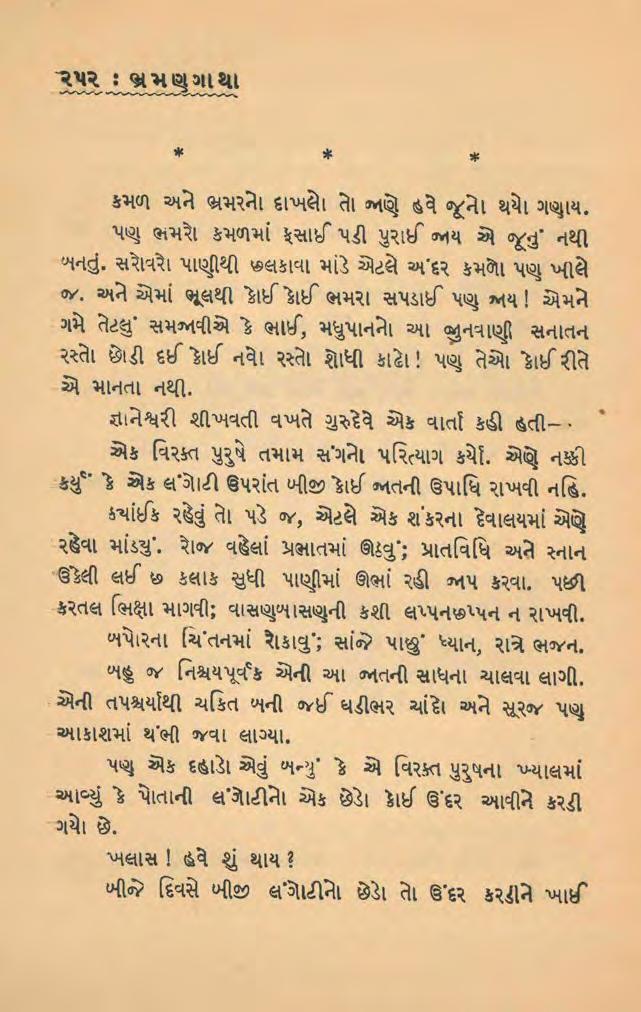 ૨૫૨ : ભ્રમણગાથા
* * *
કમળ અને ભ્રમરનો દાખલો તો જાણે હવે જૂનો થયો ગણાય.
પણ ભમરો કમળમાં ફસાઈ પડી પુરાઈ જાય એ જૂનું નથી
બનતું. સરોવરો પાણીથી છલકાવા માંડે એટલે અંદર કમળો પણ ખીલે
જ. અને એમાં ભૂલથી કોઈ કોઈ ભમરા સપડાઈ પણ જાય! એમને
ગમે તેટલું સમજાવીએ કે ભાઈ, મધુપાનનો આ જુનવાણી સનાતન
રસ્તો છોડી દઈ કોઈ નવો રસ્તો શોધી કાઢો! પણ તેઓ કોઈ રીતે
એ માનતા નથી.
જ્ઞાનેશ્વરી શીખવતી વખતે ગુરુદેવે એક વાર્તા કહી હતી–
એક વિરક્ત પુરુષે તમામ સંગનો પરિત્યાગ કર્યો. એણે નક્કી
કર્યું કે એક લંગોટી ઉપરાંત બીજી કોઈ જાતની ઉપાધિ રાખવી નહિ.
ક્યાંઈક રહેવું તો પડે જ, એટલે એક શંકરના દેવાલયમાં એણે
રહેવા માંડ્યું. રોજ વહેલાં પ્રભાતમાં ઊઠવું; પ્રાતવિધિ અને સ્નાન
ઉકેલી લઈ છ કલાક સુધી પાણીમાં ઊભાં રહી જાપ કરવા. પછી
કરતલ ભિક્ષા માગવી; વાસણબાસણની કશી લપ્પનછપ્પન ન રાખવી.
બપોરના ચિંતનમાં રોકાવું; સાંજે પાછું ધ્યાન, રાત્રે ભજન.
બહુ જ નિશ્ચયપૂર્વક એની આ જાતની સાધના ચાલવા લાગી.
એની તપશ્ચર્યાથી ચકિત બની જઈ ઘડીભર ચાંદો અને સૂરજ પણ
આકાશમાં થંભી જવા લાગ્યા.
પણ એક દહાડો એવું બન્યું કે એ વિરક્ત પુરુષના ખ્યાલમાં
આવ્યું કે પોતાની લંગોટીનો એક છેડો કોઈ ઉંદર આવીને કરડી
ગયો છે.
ખલાસ! હવે શું થાય?
બીજે દિવસે બીજી લંગોટીનો છેડો તો ઉંદર કરડીને ખાઈ